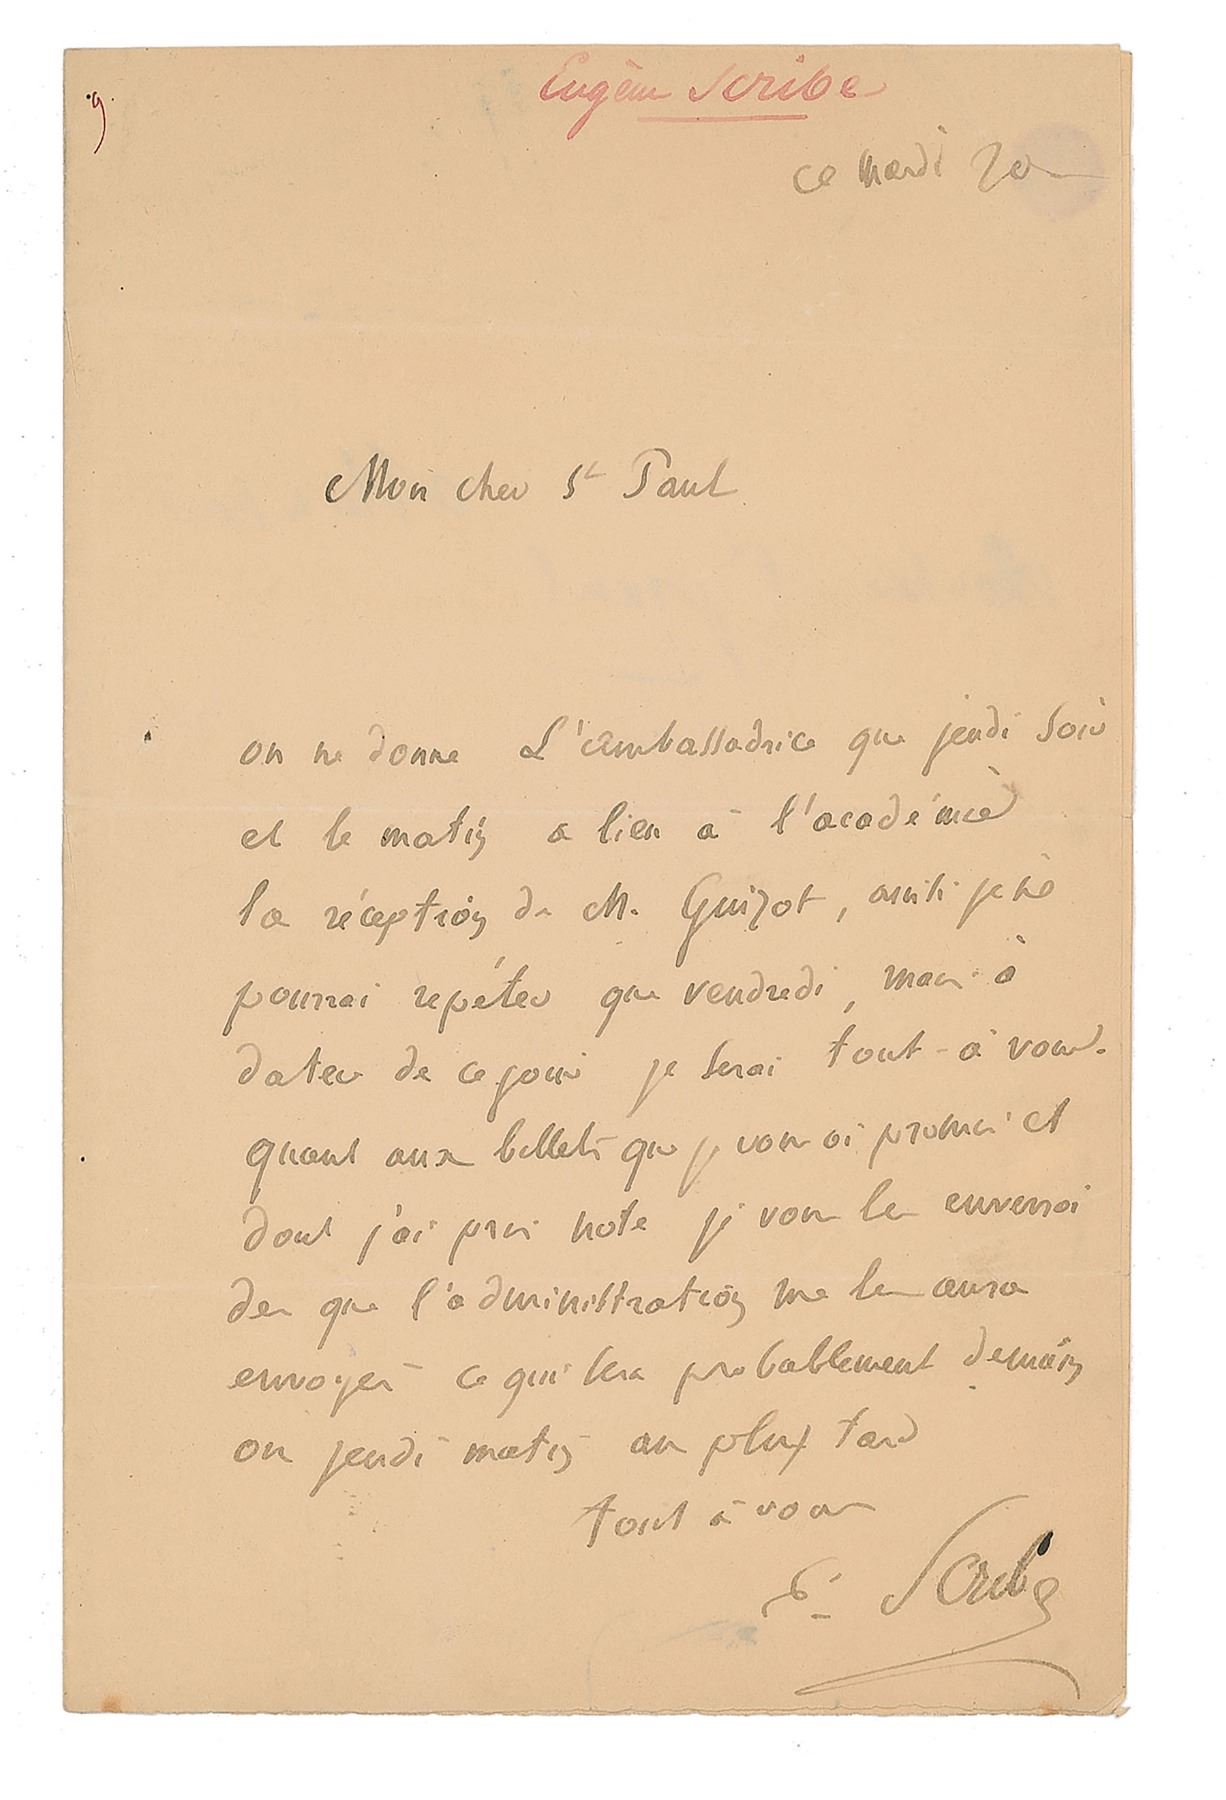 9.
Eugène Scribe
ce mardi 20
Mon cher St Paul
on ne donne L'ambassadrice que jeudi soir
et le matin a lieu à l'académie
la réception de M. Guizot, ainsi je ne
pourrai repéter que vendredi, mais à
dater de ce jour je serai tout-à vous.
quant aux billets que je vous ai promis et
dont j'ai pris note je vous les enverrai
des que l'administration me les aura
envoyés ce qui sera probablement demain
ou jeudi matin au plus tard
tout à vous
E. Scribe